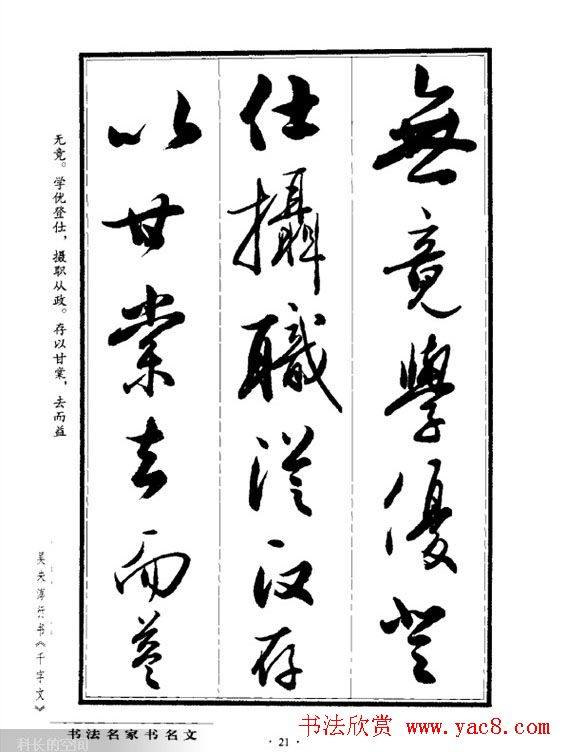 無竟學優登
仕攝職從政存
以甘棠去而益
无竟。学优登仕，摄职从政。存以甘棠，去而益
吴未淳行书《千字文》
书法名家书名文
·21·
书法欣赏 www.yac8.com
科长的空间